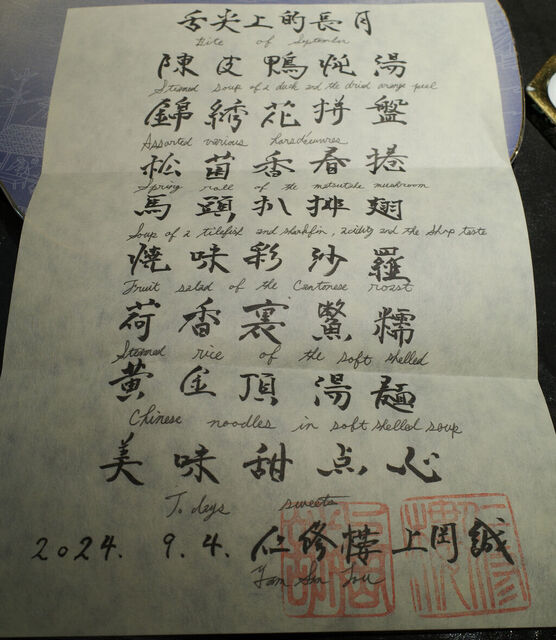 舌尖上的長月
Bite of September
陳皮鴨炖湯
Steamed soup of a duck and the dried orange peel
錦綉花拼盤
Assorted various horsdeuvres
松茵香春捲
Spring roll of the matsutake mushroom
馬頭扒排翅
Soup of a tilefish and sharkfin, acidity and the sharp taste
燒味彩沙羅
Fruit salad of the Cantonese roast
荷香裹鱉糯
Steamed rice of the soft shelled
黄金頂湯麺
Chinese noodles in soft shelled soup
美味甜点心
Todays sweets
2024. 9. 4. 仁修樓 上岡誠